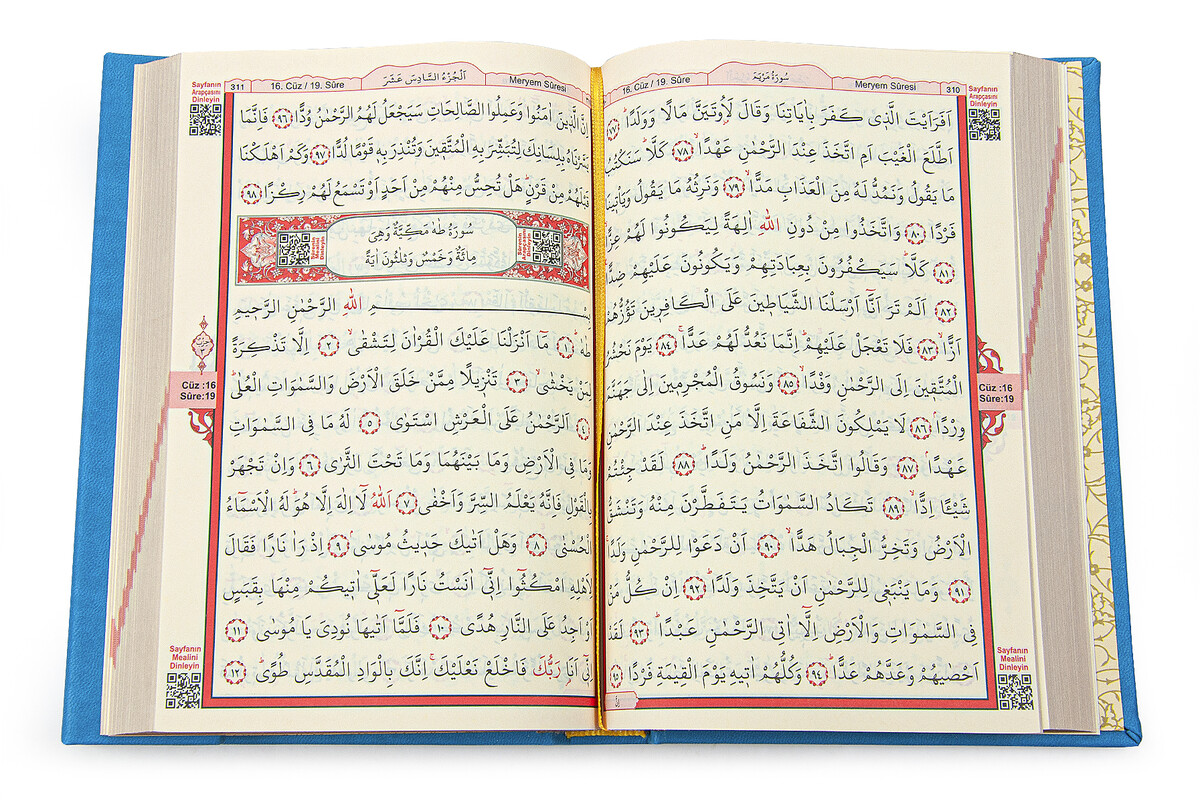 16. Cüz / 19. Sûre سُورَةُ مَرْيَمَ Meryem Sûresi 310
Sayfanın
Arapçasını
Dinleyin
اَفَرَاَيْتَ الَّذ۪ي كَفَرَ بِاٰيَاتِنَا وَقَالَ لَاُو۫تَيَنَّ مَالًا وَوَلَدًاۜ ﴿٧٧﴾
اَطَّلَعَ الْغَيْبَ اَمِ اتَّخَذَ عِنْدَ الرَّحْمٰنِ عَهْدًاۙ ﴿٧٨﴾ كَلَّاۜ سَنَكْتُبُ
مَا يَقُولُ وَنَمُدُّ لَهُ مِنَ الْعَذَابِ مَدًّاۙ ﴿٧٩﴾ وَنَرِثُهُ مَا يَقُولُ وَيَأْت۪ينَا
فَرْدًا ﴿٨٠﴾ وَاتَّخَذُوا مِنْ دُونِ اللّٰهِ اٰلِهَةً لِيَكُونُوا لَهُمْ عِزًّاۙ
﴿٨١﴾ كَلَّاۜ سَيَكْفُرُونَ بِعِبَادَتِهِمْ وَيَكُونُونَ عَلَيْهِمْ ضِدًّا۟
﴿٨٢﴾ اَلَمْ تَرَ اَنَّٓا اَرْسَلْنَا الشَّيَاط۪ينَ عَلَى الْكَافِر۪ينَ تَؤُزُّهُمْ
اَزًّاۙ ﴿٨٣﴾ فَلَا تَعْجَلْ عَلَيْهِمْۜ اِنَّمَا نَعُدُّ لَهُمْ عَدًّاۚ ﴿٨٤﴾ يَوْمَ نَحْشُرُ
الْمُتَّق۪ينَ اِلَى الرَّحْمٰنِ وَفْدًاۙ ﴿٨٥﴾ وَنَسُوقُ الْمُجْرِم۪ينَ اِلٰى جَهَنَّمَ
وِرْدًاۢ ﴿٨٦﴾ لَا يَمْلِكُونَ الشَّفَاعَةَ اِلَّا مَنِ اتَّخَذَ عِنْدَ الرَّحْمٰنِ
عَهْدًاۢ ﴿٨٧﴾ وَقَالُوا اتَّخَذَ الرَّحْمٰنُ وَلَدًاۜ ﴿٨٨﴾ لَقَدْ جِئْتُمْ
شَيْـًٔا اِدًّاۙ ﴿٨٩﴾ تَكَادُ السَّمٰوَاتُ يَتَفَطَّرْنَ مِنْهُ وَتَنْشَقُّ
الْاَرْضُ وَتَخِرُّ الْجِبَالُ هَدًّاۙ ﴿٩٠﴾ اَنْ دَعَوْا لِلرَّحْمٰنِ وَلَدًاۚ
﴿٩١﴾ وَمَا يَنْبَغ۪ي لِلرَّحْمٰنِ اَنْ يَتَّخِذَ وَلَدًاۜ ﴿٩٢﴾ اِنْ كُلُّ مَنْ
فِي السَّمٰوَاتِ وَالْاَرْضِ اِلَّٓا اٰتِي الرَّحْمٰنِ عَبْدًاۜ ﴿٩٣﴾ لَقَدْ
اَحْصٰيهُمْ وَعَدَّهُمْ عَدًّاۜ ﴿٩٤﴾ وَكُلُّهُمْ اٰت۪يهِ يَوْمَ الْقِيٰمَةِ فَرْدًا ﴿٩٥﴾
Cüz :16
Sûre:19
Sayfanın
Mealini
Dinleyin
311 16. Cüz / 19. Sûre اَلْجُزْءُ السَّادِسَ عَشَرَ Meryem Sûresi
Sayfanın
Arapçasını
Dinleyin
اِنَّ الَّذ۪ينَ اٰمَنُوا وَعَمِلُوا الصَّالِحَاتِ سَيَجْعَلُ لَهُمُ الرَّحْمٰنُ وُدًّا ﴿٩٦﴾ فَاِنَّمَا
يَسَّرْنَاهُ بِلِسَانِكَ لِتُبَشِّرَ بِهِ الْمُتَّق۪ينَ وَتُنْذِرَ بِه۪ قَوْمًا لُدًّا ﴿٩٧﴾ وَكَمْ اَهْلَكْنَا
قَبْلَهُمْ مِنْ قَرْنٍۜ هَلْ تُحِسُّ مِنْهُمْ مِنْ اَحَدٍ اَوْ تَسْمَعُ لَهُمْ رِكْزًا ﴿٩٨﴾
سُورَةُ طٰهٰ مَكِّيَّةٌ وَهِيَ
مِائَةٌ وَخَمْسٌ وَثَلٰثُونَ اٰيَةً
Sûrenin
Arapçasını
Dinleyin
Sûrenin
Mealini
Dinleyin
بِسْمِ اللّٰهِ الرَّحْمٰنِ الرَّح۪يمِ
طٰهٰۜ ﴿١﴾ مَٓا اَنْزَلْنَا عَلَيْكَ الْقُرْاٰنَ لِتَشْقٰىۙ ﴿٢﴾ اِلَّا تَذْكِرَةً
لِمَنْ يَخْشٰىۙ ﴿٣﴾ تَنْز۪يلًا مِمَّنْ خَلَقَ الْاَرْضَ وَالسَّمٰوَاتِ الْعُلٰىۜ
﴿٤﴾ اَلرَّحْمٰنُ عَلَى الْعَرْشِ اسْتَوٰى ﴿٥﴾ لَهُ مَا فِي السَّمٰوَاتِ
وَمَا فِي الْاَرْضِ وَمَا بَيْنَهُمَا وَمَا تَحْتَ الثَّرٰى ﴿٦﴾ وَاِنْ تَجْهَرْ
بِالْقَوْلِ فَاِنَّهُ يَعْلَمُ السِّرَّ وَاَخْفٰى ﴿٧﴾ اَللّٰهُ لَٓا اِلٰهَ اِلَّا هُوَۜ لَهُ الْاَسْمَٓاءُ
الْحُسْنٰى ﴿٨﴾ وَهَلْ اَتٰيكَ حَد۪يثُ مُوسٰىۢ ﴿٩﴾ اِذْ رَاٰ نَارًا فَقَالَ
لِاَهْلِهِ امْكُـثُٓوا اِنّ۪ٓي اٰنَسْتُ نَارًا لَعَلّ۪ٓي اٰت۪يكُمْ مِنْهَا بِقَبَسٍ
اَوْ اَجِدُ عَلَى النَّارِ هُدًى ﴿١٠﴾ فَلَمَّٓا اَتٰيهَا نُودِيَ يَا مُوسٰىۜ ﴿١١﴾
اِنّ۪ٓي اَنَا۬ رَبُّكَ فَاخْلَعْ نَعْلَيْكَۚ اِنَّكَ بِالْوَادِ الْمُقَدَّسِ طُوًىۜ ﴿١٢﴾
Cüz :16
Sûre:19
Sayfanın
Mealini
Dinleyin